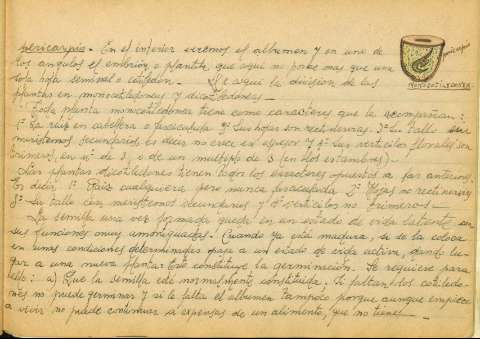 pericarpio.- En el interior veremos el albumen y en uno de
los angulos el embrión o plantita, que aqui no posee mas que una
sola hoja seminal o cotiledon.- He aqui la division de las
plantas en monocotiledoneas y dicotiledoneas-
pericarpio
MONOCOTILEDONEA
Toda planta monocotiledonea tiene como caracteres que la acompañan:
1º La raiz en cabellera o fasciculada 2º Sus hojas son rectinervias. 3º Su tallo sin
meristemos secundarios es decir no crece en espesor y 4º sus verticilos florales son
trimeros, en nº de 3, o de un multiplo de 3 (en los estambres).-
Las plantas dicotiledoneas tienen todos los caracteres opuestos a las anteriores.
Es decir: 1º Raiz cualquiera pero nunca fasciculada 2º Hojas no rectinervias
3º Su tallo con meristemos secundarios y 4º verticilos no trimeros.-
La semilla una vez formada queda en un estado de vida latente con
sus funciones muy amortiguadas. Cuando ya está madura, si se la coloca
en unas condiciones determinadas pasa a un estado de vida activa, dando lu-
gar a una nueva planta. Esto constituye la germinación. Se requiere para
ello: a) Que la semilla esté normalmente constituida. Si faltan los cotiledo-
nes no puede germinar y si le falta el albumen tampoco porque aunque empiece
a vivir no puede continuar a expensas de un alimento, que no tiene.-